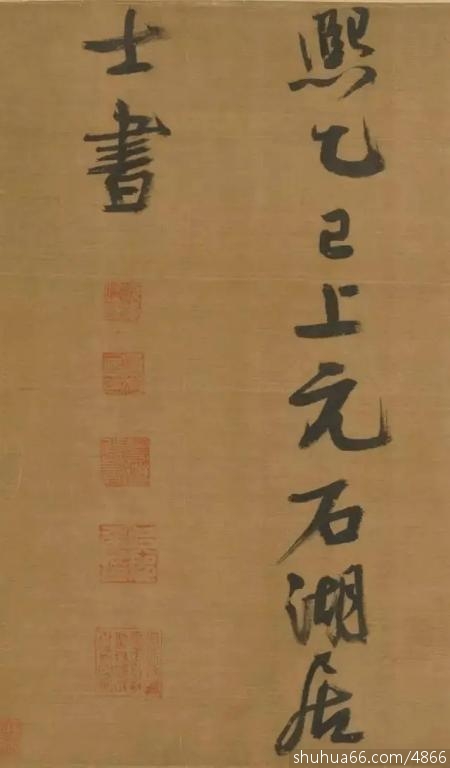 熙乙巳上元石湖居
士書
shuhua66.com/4866